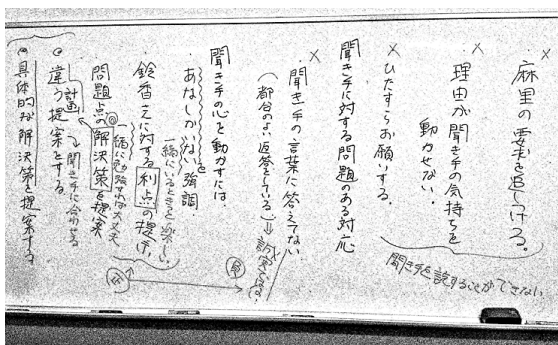 ×
麻里の要求を退しりぞける。
×
理由が聞き手の気持ちを
動かせない。
×
ひたすらお願いする。
聞き手を説することができない
聞き手に対する問題のある対応
×
聞き手の言葉に答えてない
(都合のよい返答をしている。)⇒誠実でない
聞き手の心を動かすには、
・あなたしかいない強調
一緒にいるときを楽しい
・鈴香さんに対する利点の提示
一緒に勉強すれば大丈夫
問題点の解決策を提案
計画
違う提案をする
聞き手に合わせる
具体的な解決策を提案する